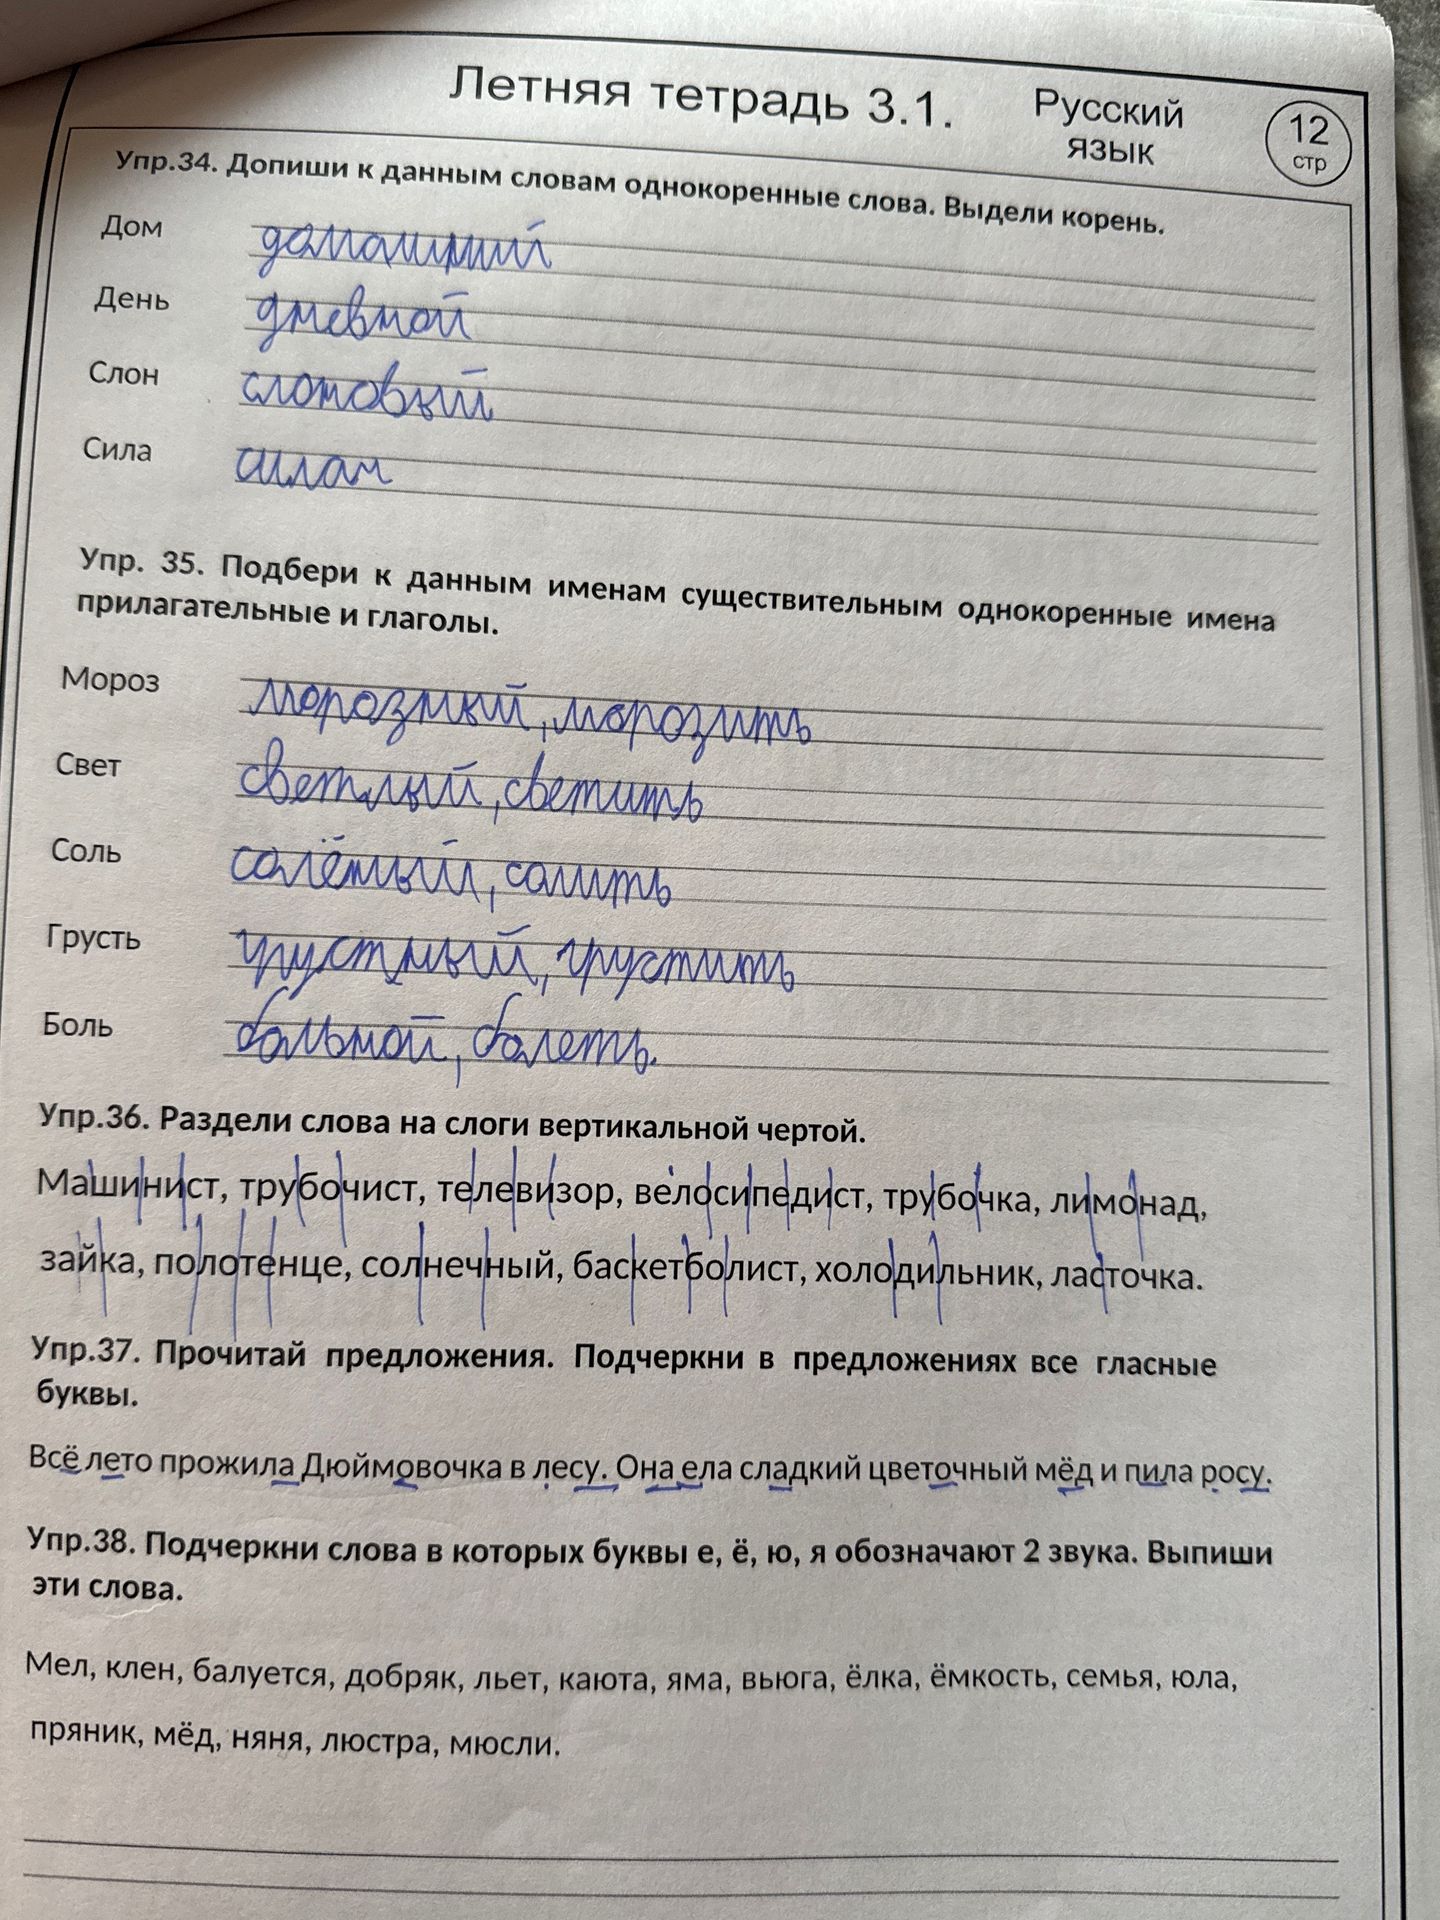 Летняя тетрадь 3.1. Русский язык 12 стр
Упр.34. Допиши к данным словам однокоренные слова. Выдели корень.
Дом домашний
День дневной
Слон слоновый
Сила силач
Упр. 35. Подбери к данным именам существительным однокоренные имена
прилагательные и глаголы.
Мороз морозный, морозить
Свет светлый, светить
Соль солёный, солить
Грусть грустный, грустить
Боль больной, болеть.
Упр.36. Раздели слова на слоги вертикальной чертой.
Машинист, трубочист, телевизор, велосипедист, трубочка, лимонад,
зайка, полотенце, солнечный, баскетболист, холодильник, ласточка.
Упр.37. Прочитай предложения. Подчеркни в предложениях все гласные
буквы.
Всё лето прожила Дюймовочка в лесу. Она ела сладкий цветочный мёд и пила росу.
Упр.38. Подчеркни слова в которых буквы е, ё, ю, я обозначают 2 звука. Выпиши
эти слова.
Мел, клен, балуется, добряк, льет, каюта, яма, вьюга, ёлка, ёмкость, семья, юла,
пряник, мёд, няня, люстра, мюсли.